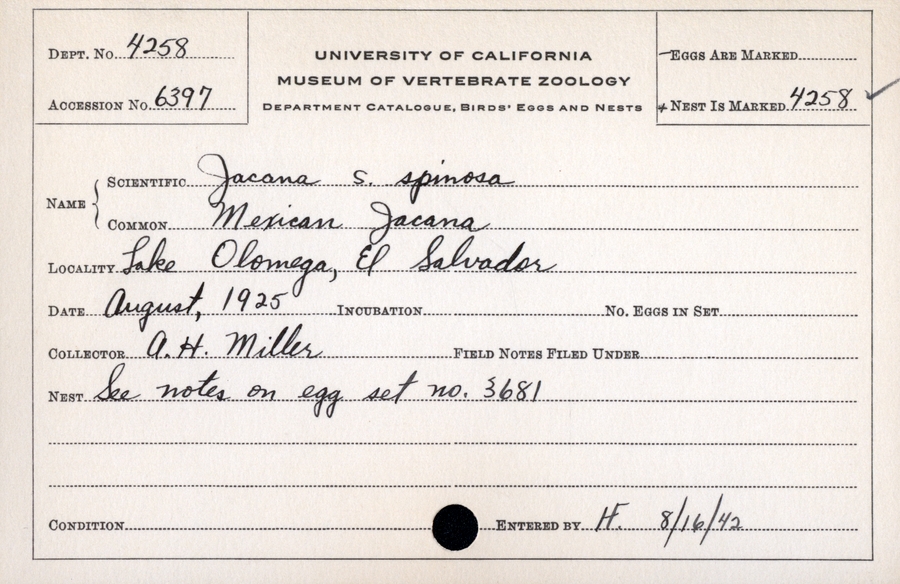 Dept. No. 4258
Accession No. 6397
UNIVERSITY OF CALIFORNIA
MUSEUM OF VERTEBRATE ZOOLOGY
Department Catalogue, Birds' Eggs and Nests
Eggs Are Marked
Nest Is Marked 4258
Name
Scientific Jacana s. spinosa
Common Mexican Jacana
Locality Lake Olomega, El Salvador
Date August, 1925 Incubation No. Eggs in Set
Collector A. H. Miller Field Notes Filed Under
Nest See notes on egg set no. 3681
Condition Entered by H. 8/16/42